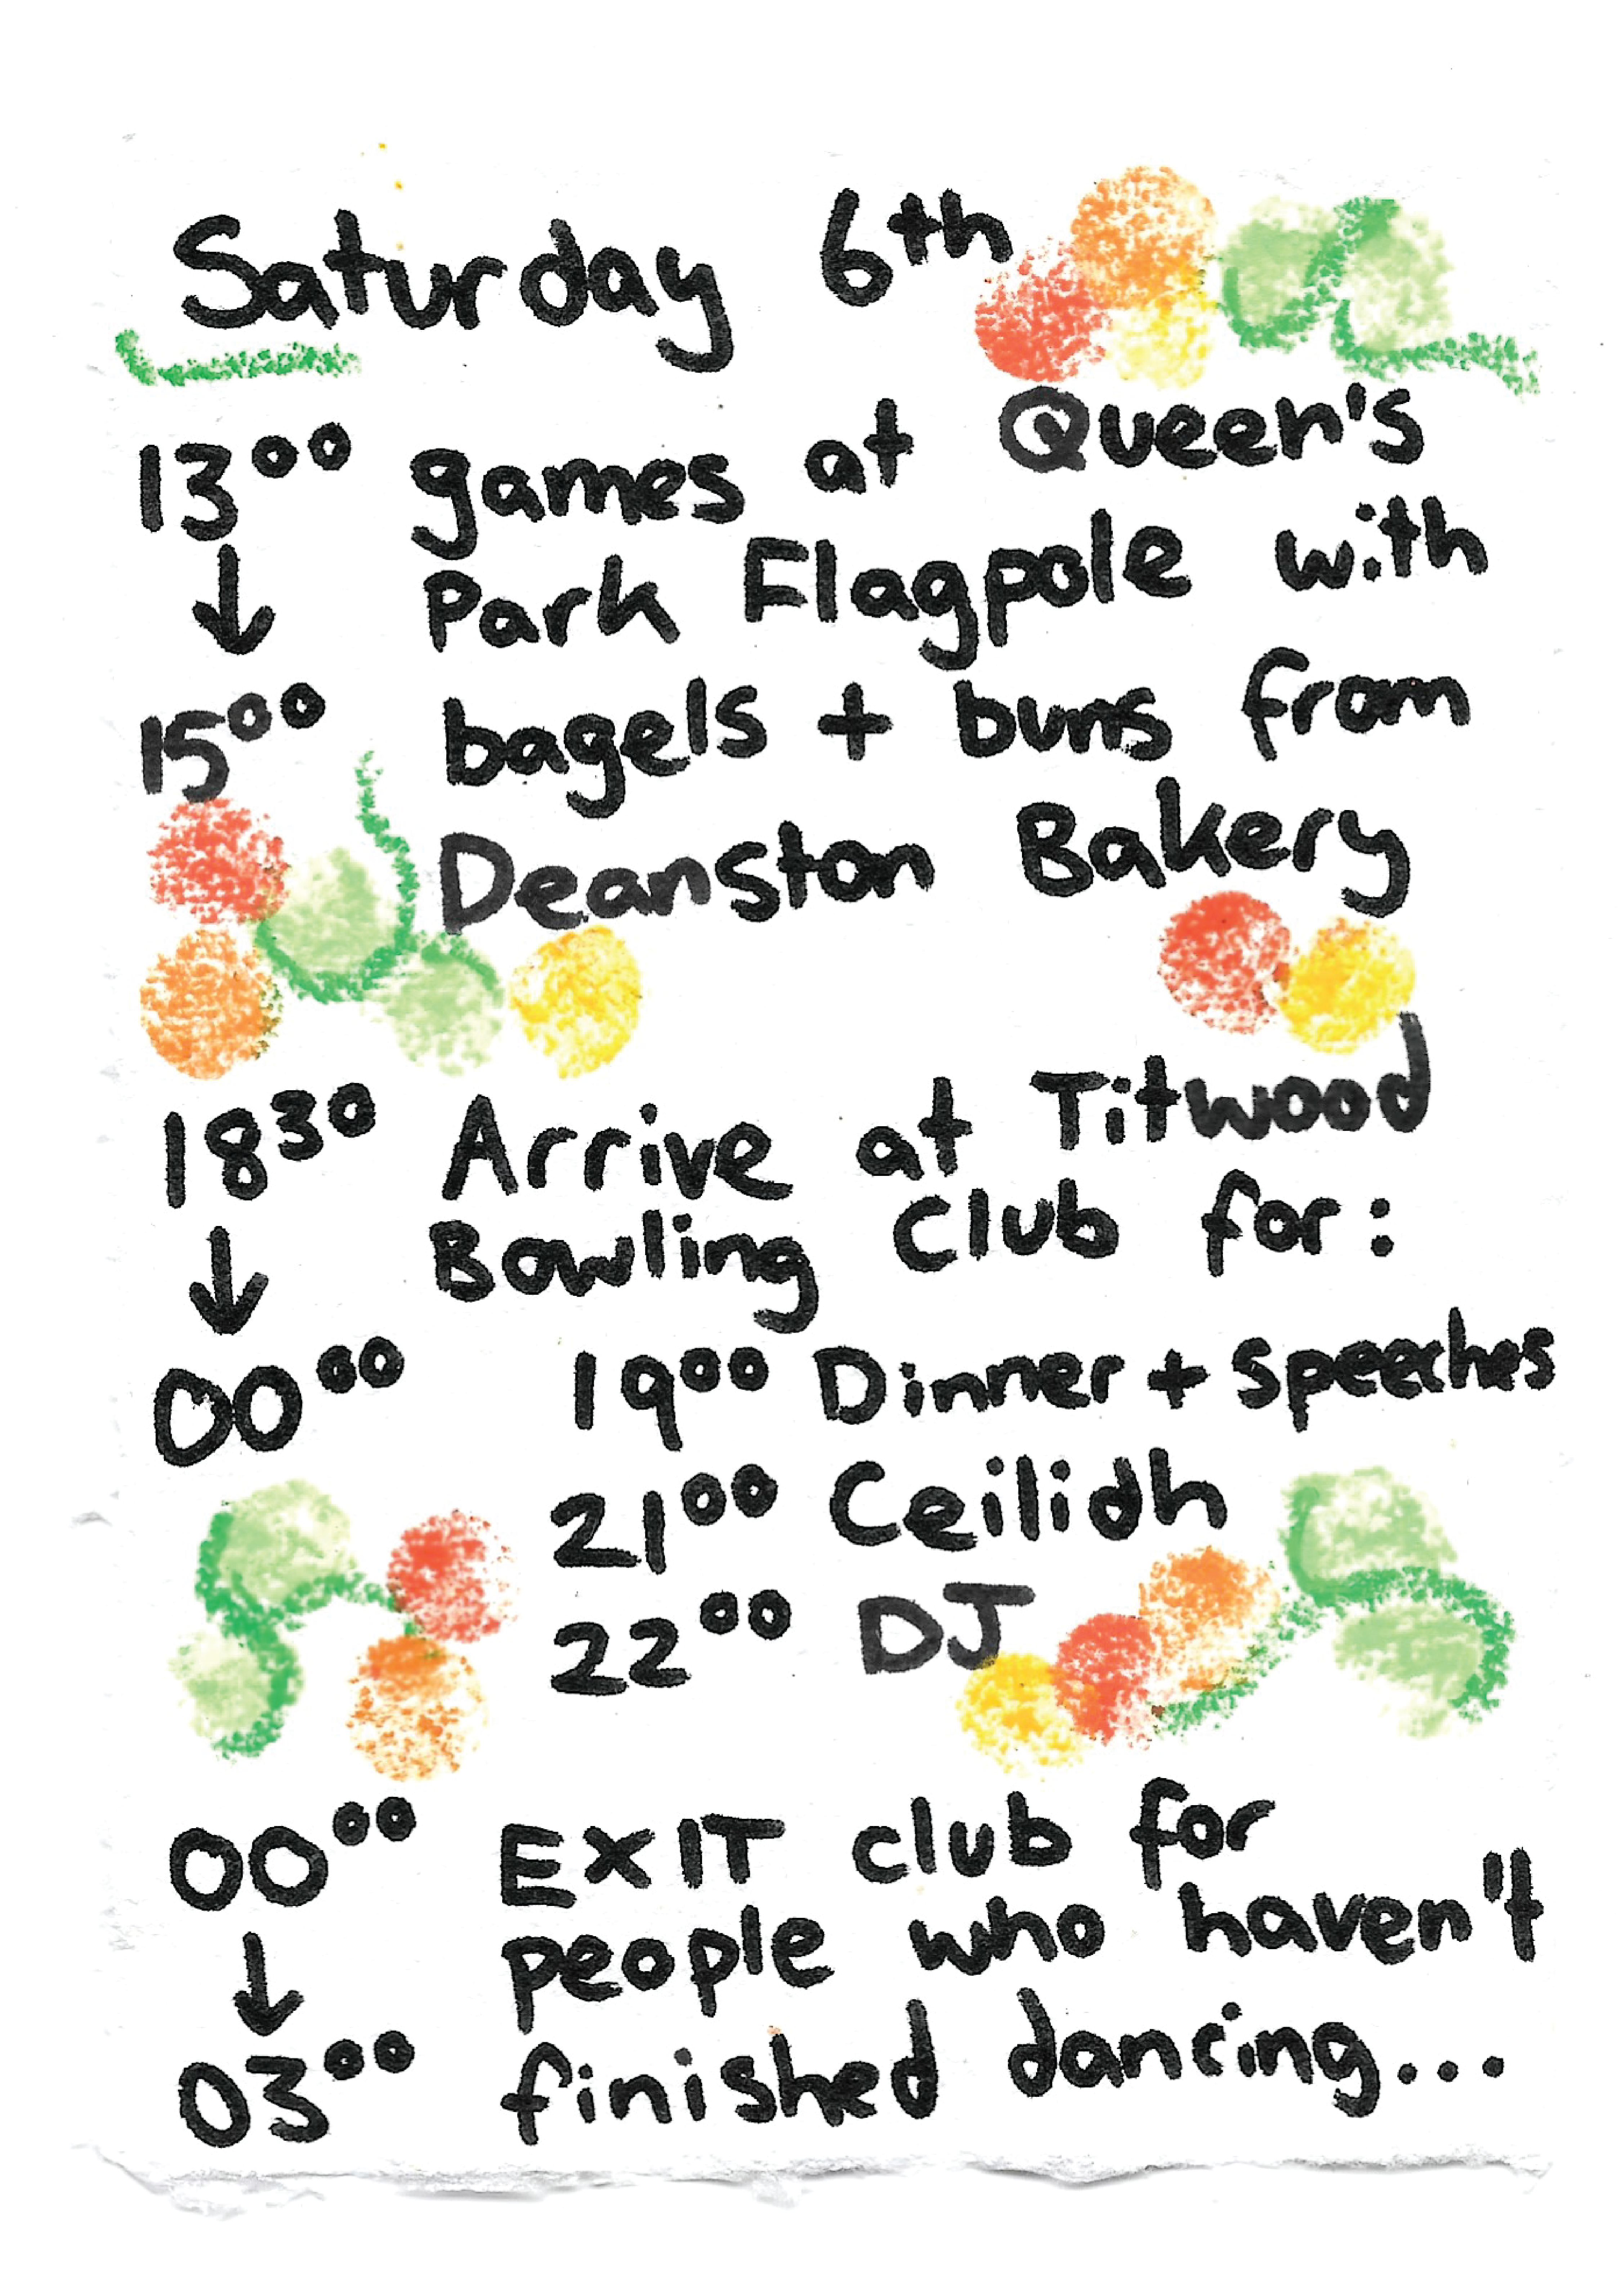 Saturday 6th
13⁰⁰ games at Queen's
↓ Park Flagpole with
15⁰⁰ bagels + buns from
Deanston Bakery
18³⁰ Arrive at Titwood
↓ Bowling Club for:
00⁰⁰ 19⁰⁰ Dinner + Speeches
21⁰⁰ Ceilidh
22⁰⁰ DJ
00⁰⁰ EXIT club for
↓ people who haven't
03⁰⁰ finished dancing...